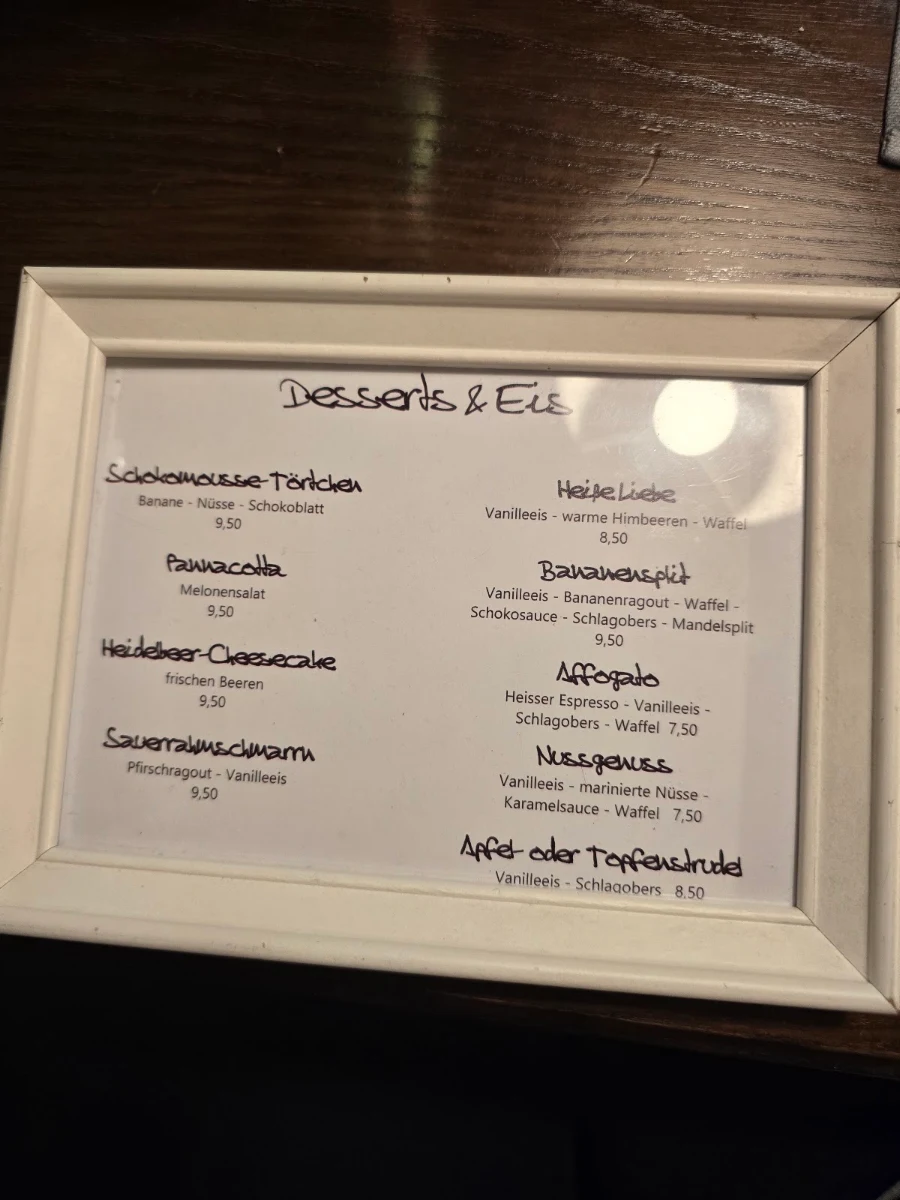 Desserts & Eis
Schokomousse-Törtchen
Banane - Nüsse - Schokoblatt
9,50
Pannacotta
Melonensalat
9,50
Heidelbeer-Cheesecake
frischen Beeren
9,50
Sauerrahmschmarrn
Pfirschragout - Vanilleeis
9,50
Heiße Liebe
Vanilleeis - warme Himbeeren - Waffel
8,50
Bananensplit
Vanilleeis - Bananenragout - Waffel -
Schokosauce - Schlagobers - Mandelsplit
9,50
Affogato
Heisser Espresso - Vanilleeis -
Schlagobers - Waffel 7,50
Nussgenuss
Vanilleeis - marinierte Nüsse -
Karamelsauce - Waffel 7,50
Apfel- oder Topfenstrudel
Vanilleeis - Schlagobers 8,50